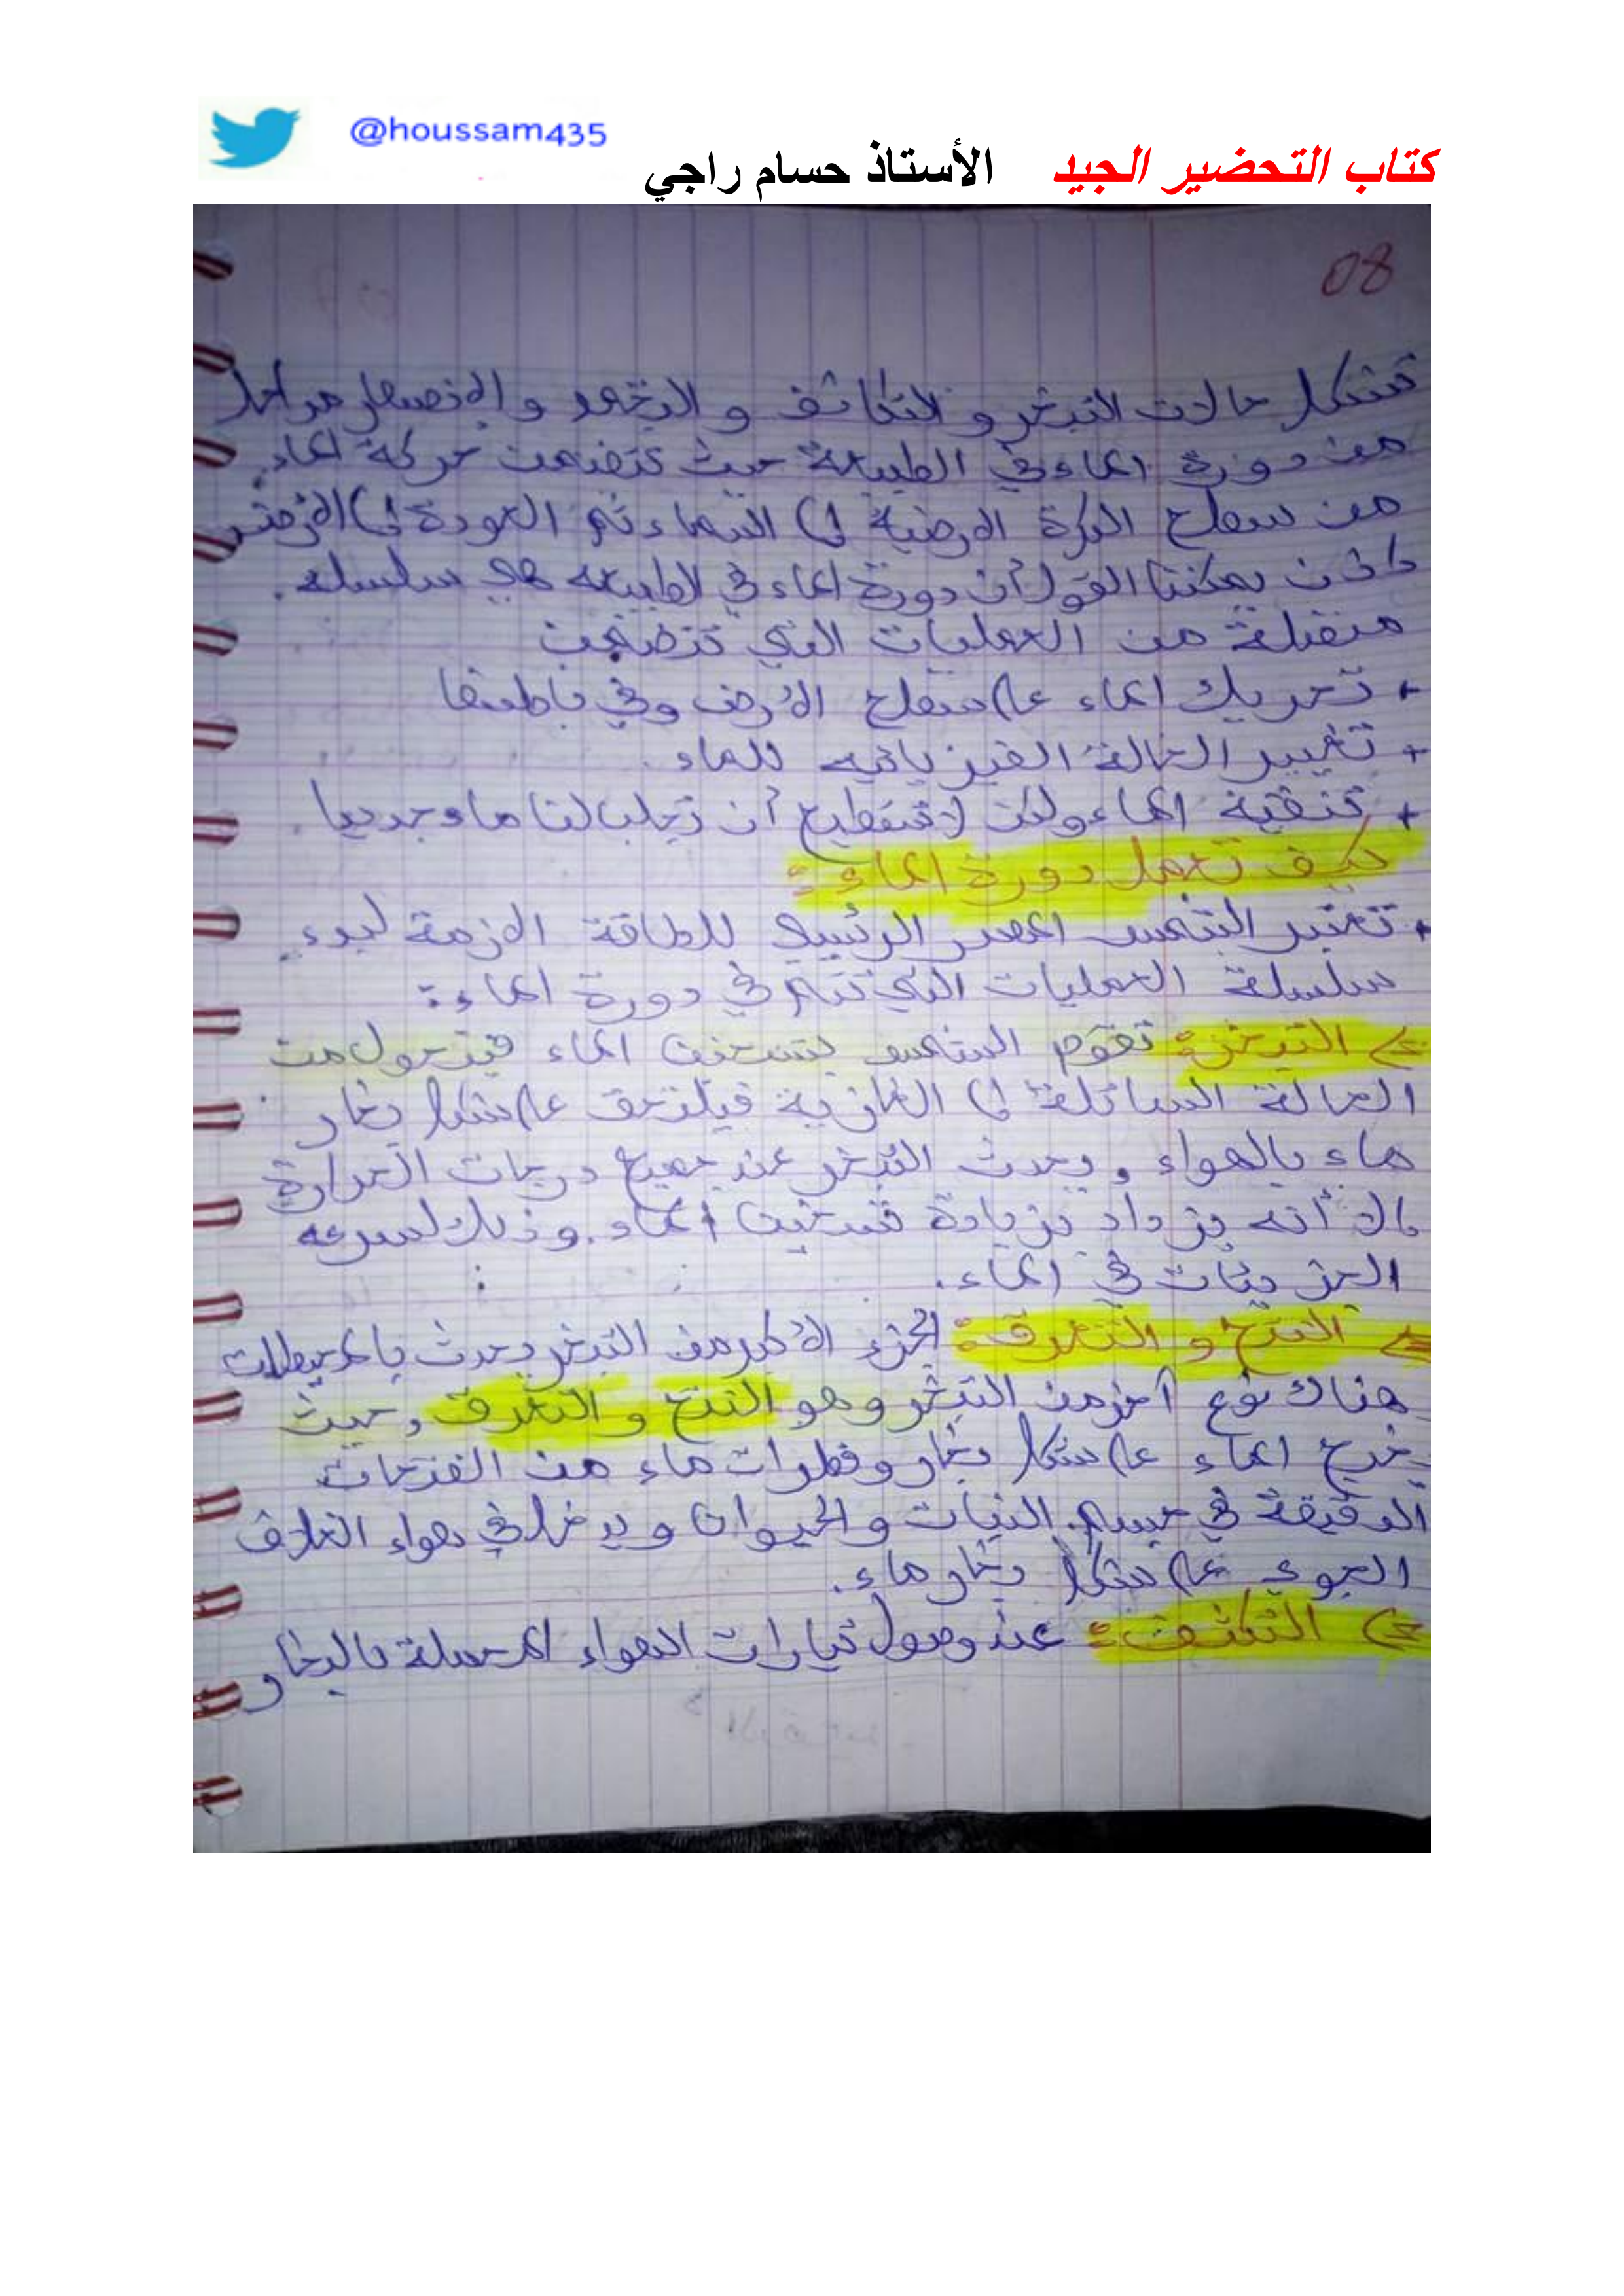 @houssam435
كتاب التحضير الجيد الأستاذ حسام راجي
08
تشكل حالات التبخر و التكاثف و التجمد و الانصهار مراحل
من دورة الماء في الطبيعة حيث تتضمن حركة الماء
من سطح الكرة الارضية إلى السماء ثم العودة إلى الأرض
إذن يمكننا القول أن دورة الماء في الطبيعه هي سلسلة.
متصلة من العمليات التي تتضمن
+ تحريك الماء على سطح الأرض وفي باطنها
+ تغيير الحالة الفيزيائيه للماء.
+ تنقية الماء ولكن لا تستطيع أن تجلب لنا ماء جديدا.
كيف تعمل دورة الماء:
+ تعتبر الشمس المصدر الرئيسي للطاقة الازمة لبدء
سلسلة العمليات التي تتم في دورة الماء:
التبخر: تقوم الشمس بتسخين الماء فيتحول من
الحالة السائلة إلى الغازية فيلتحق على شكل بخار
ماء بالهواء، ويحدث التبخر عند جميع درجات الحرارة
إلا أنه يزداد بزيادة تسخين الماء. وذلك لسرعه
الجزيئات في الماء.
النتح و التعرق: الجزء الأكبر من التبخر يحدث بالمحيطات
هناك نوع آخر من التبخر وهو النتح و التعرق، حيث
يخرج الماء على شكل بخار وقطرات ماء من الفتحات
الدقيقة في جسم النبات والحيوان ويدخل في هواء الغلاف
الجوي على شكل بخار ماء.
التكثف: عند وصول تيارات الهواء المحملة بالبخار